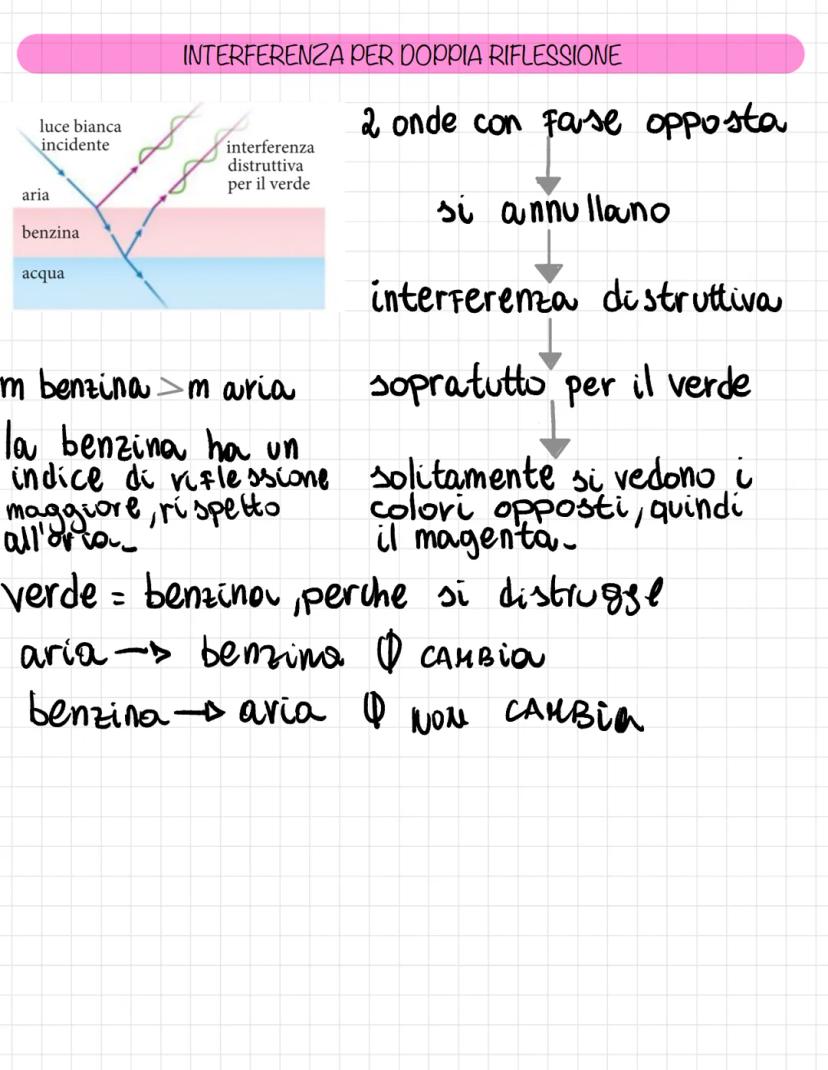 INTERFERENZA PER DOPPIA RIFLESSIONE
luce bianca
incidente
interferenza
distruttiva
per il verde
aria
benzina
acqua
2 onde con fase opposta
si annullano
interferenza distruttiva
sopratutto per il verde
solitamente si vedono i
colori opposti, quindi
il magenta.
m benzina > m aria
la benzina ha un
indice di riflessione
maggiore, rispetto
all'aria.
verde = benzina, perche si distrugge
aria → benzina Φ CAMBIA
benzina → aria Φ NON CAMBIA